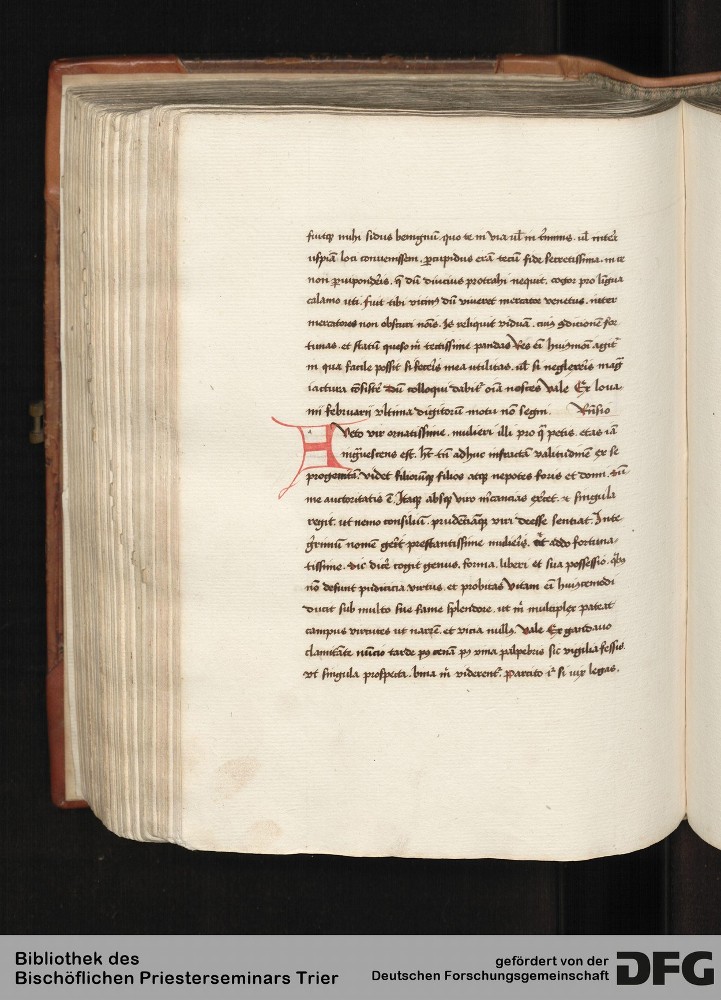 fuitqȝ mihi sidus benignū. quo te in via ul̄ in t̄minis. ul̄ inter̄
uspiā loci convenissem. ꝑcupidus erā tecū fide secretissima. in re
non ꝑuiponder̄is. q̄ dū diucius protrahi nequit. cogor pro līgua
calamo uti. fuit tibi vicinꝰ dū viueret mercator venetus. inter
mercatores non obscuri nōis. Is reliquit viduā. cuiꝰ 9dicionē for
tunas. et statū queso m̄ tectissime pandas Res ei huiꝰmōi agit̄
in qua facile possit si feceris mea utilitas. ul̄ si neglexeris maḡ
iactura cōsister̄ dū colloqui dabit̄ oīa nosces Vale Ex loua
nii februarij vltima digitorū motu nō segni. Rn̄sio
Aueto vir ornatissime. mulieri illi pro q̄ petis. etas iā
ingrauescens est. h̄t tn̄ adhuc infractā valitudinē ex se
progenitā. videt filiorūqȝ filios atqȝ nepotes foris et domi. sū
me auctoritatis ē. Itaqȝ absqȝ viro m̄cancias ex̄cet. et singula
regit. ut nemo consiliū. prudēciāqȝ viri deesse sentiat. Inte
gerrimū nomē gerit prestantissime mulieris. et addo fortuna-
tissime. sic dicē cogit genus, forma, liberi et sua possessio. qbȝ
nō desunt pudicicia virtus. et probitas Vitam ei huiꝰcemodi
ducit sub multo sue fame splendore. ut m̄ multiplex pateat
campus virtutes ut narrē. et vicia nullꝰ. Vale Ex gandauo
clamitāte nūcio tarde pꝰ cenā pꝰ vina palpebris sic vigilia fessis.
vt singula prospecta. bina m̄ viderent̄. Parcito ꝗ si vix legas.
Bibliothek des
Bischöflichen Priesterseminars Trier
gefördert von der
Deutschen Forschungsgemeinschaft
DFG